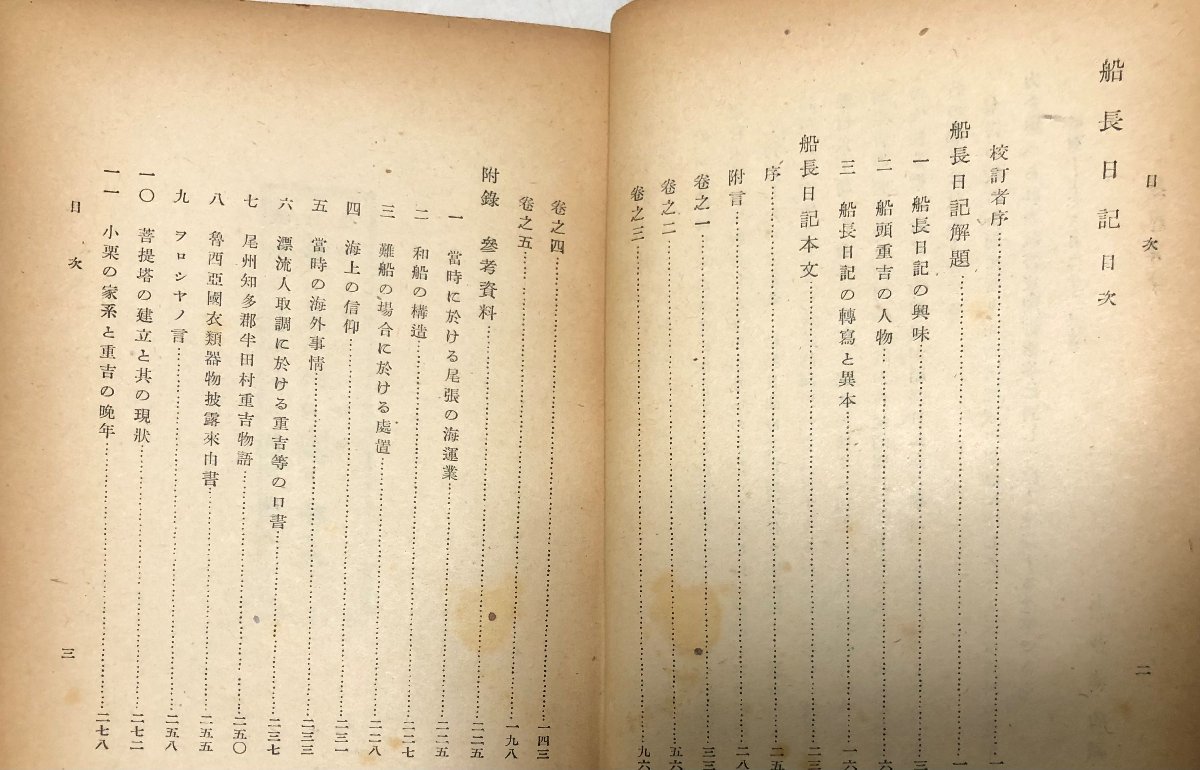 船長日記目次
校訂者序……一
船長日記解題……一
一 船長日記の興味……三
二 船頭重吉の人物……六
三 船長日記の轉寫と異本……一六
船長日記本文……二三
序……二五
附言……二八
卷之一……三三
卷之二……五六
卷之三……九六
目次
二
卷之四……一四三
卷之五……一九八
附錄 參考資料……二二五
一 當時に於ける尾張の海運業……二二五
二 和船の構造……二二七
三 難船の場合に於ける處置……二二八
四 海上の信仰……二三一
五 當時の海外事情……二三三
六 漂流人取調に於ける重吉等の口書……二三七
七 尾州知多郡半田村重吉物語……二五〇
八 魯西亞國衣類器物披露來由書……二五五
九 ヲロシヤノ言……二五八
一〇 菩提塔の建立と其の現狀……二七二
一一 小栗の家系と重吉の晩年……二七八
目次
三